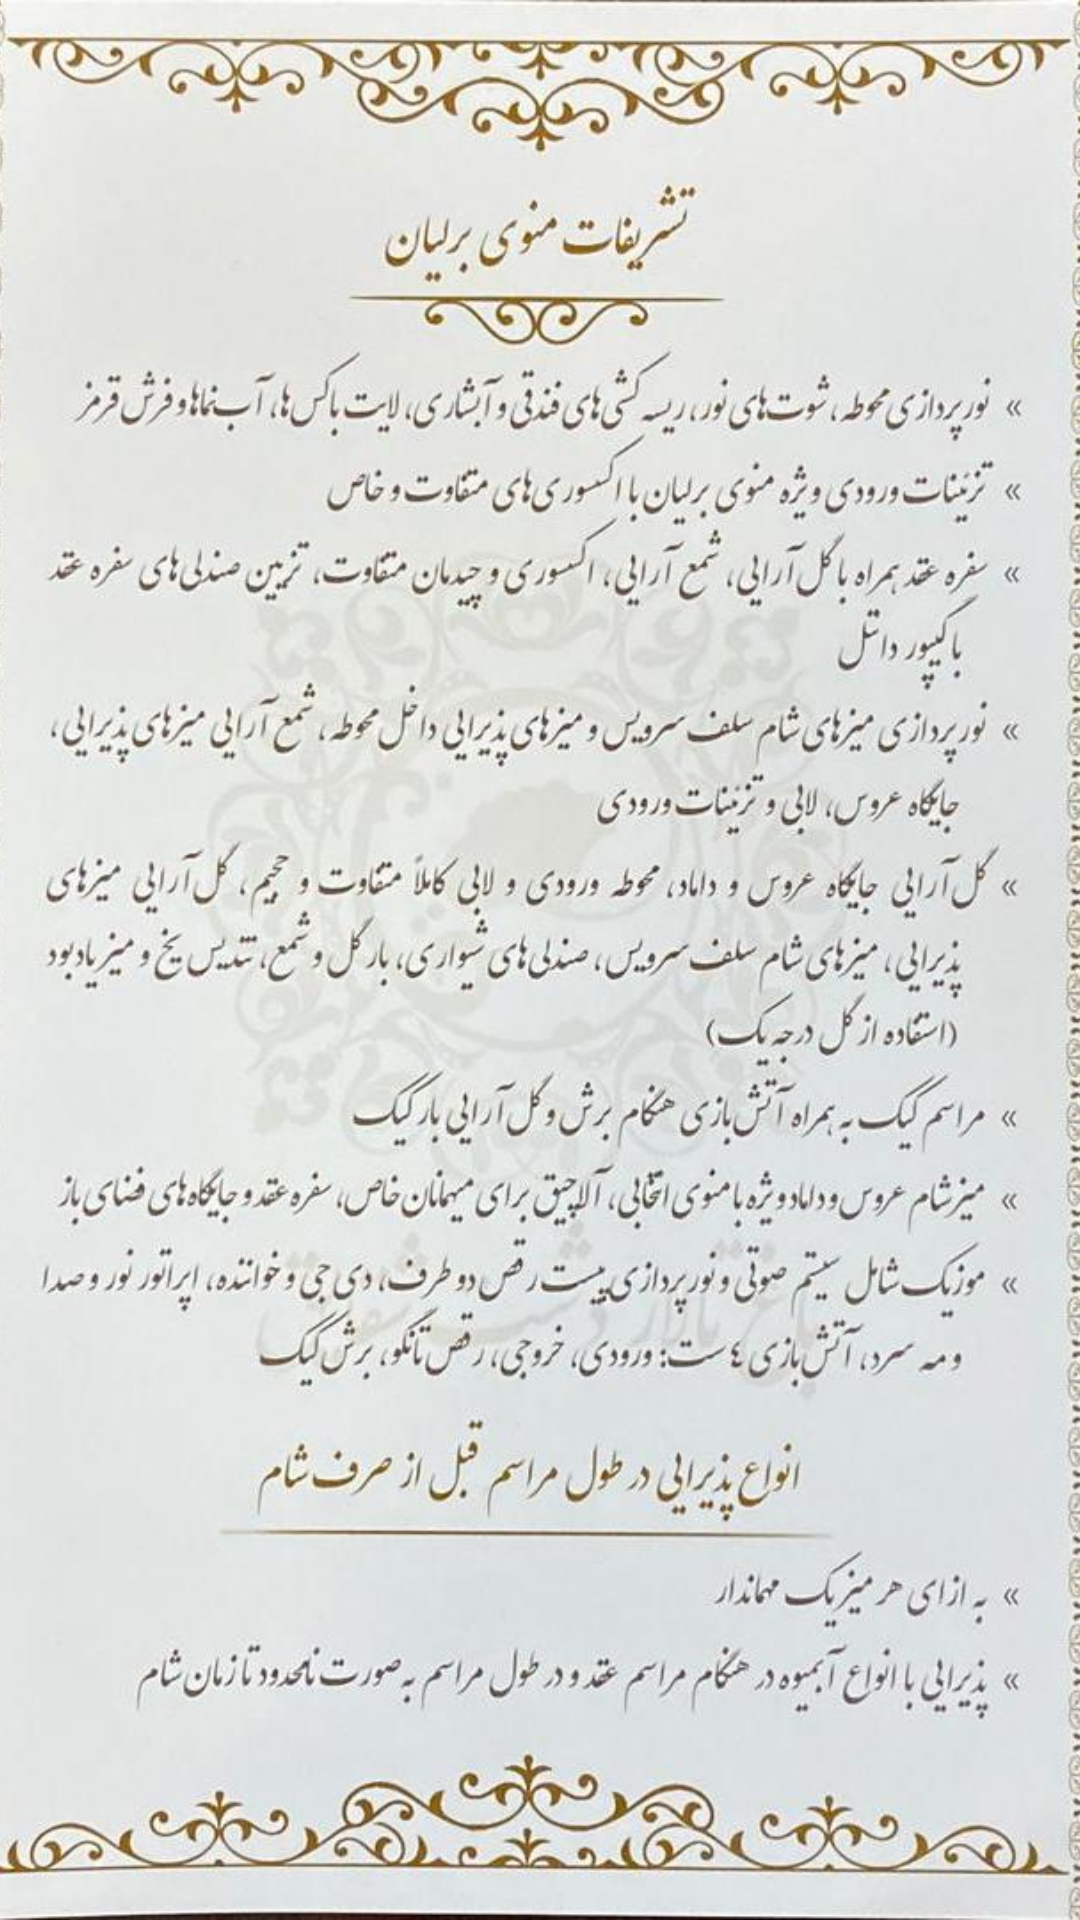 تشریفات منوی برلیان
» نورپردازی محوطه، شوت‌های نور، ریسه کشی‌های فندقی و آبشاری، لایت باکس‌ها، آب‌نماها و فرش قرمز
» تزئینات ورودی ویژه منوی برلیان با اکسسوری‌های متفاوت و خاص
» سفره عقد همراه با گل‌آرایی، شمع آرایی، اکسسوری و چیدمان متفاوت، تزیین صندلی‌های سفره عقد
با گیپور دانتل
» نورپردازی میزهای شام سلف سرویس و میزهای پذیرایی داخل محوطه، شمع آرایی میزهای پذیرایی،
جایگاه عروس، لابی و تزئینات ورودی
» گل‌آرایی جایگاه عروس و داماد، محوطه ورودی و لابی کاملاً متفاوت و حجیم، گل‌آرایی میزهای
پذیرایی، میزهای شام سلف سرویس، صندلی‌های شیواری، بار گل و شمع، تندیس یخ و میز یادبود
(استفاده از گل درجه یک)
» مراسم کیک به همراه آتش‌بازی هنگام برش و گل‌آرایی بار کیک
» میز شام عروس و داماد ویژه با منوی انتخابی، آلاچیق برای میهمانان خاص، سفره عقد و جایگاه‌های فضای باز
» موزیک شامل سیستم صوتی و نورپردازی پیست رقص دو طرف، دی جی و خواننده، اپراتور نور و صدا
و مه سرد، آتش‌بازی ٤ ست: ورودی، خروجی، رقص تانگو، برش کیک
باغ تالار دشت شقایق
انواع پذیرایی در طول مراسم قبل از صرف شام
» به ازای هر میز یک مهماندار
» پذیرایی با انواع آبمیوه در هنگام مراسم عقد و در طول مراسم به صورت نامحدود تا زمان شام